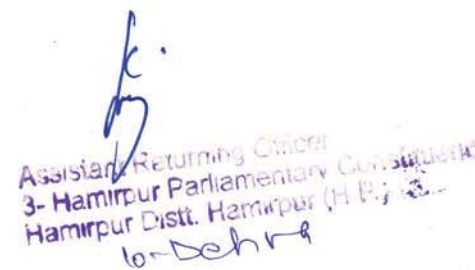 Assistant Returning Officer
3- Hamirpur Parliamentary
Hamirpur Distt. Hamirpur (H.P.)
10-Dehra